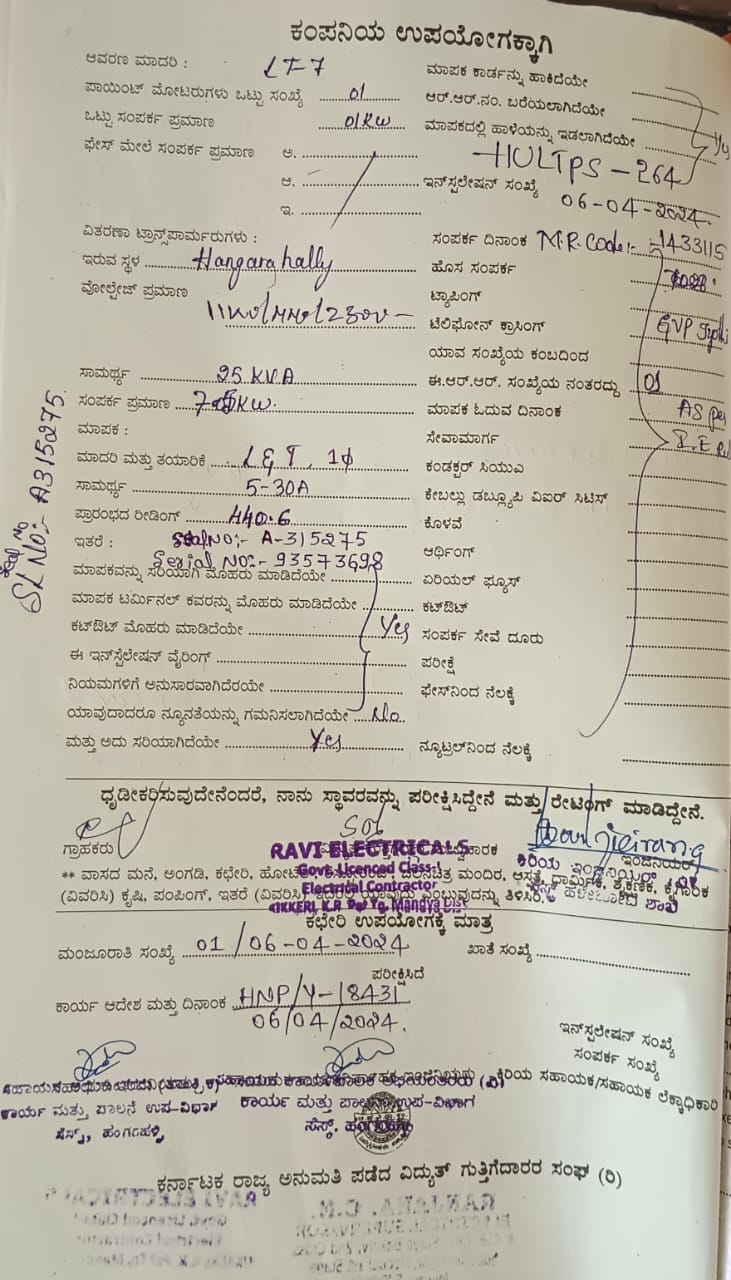 ಕಂಪನಿಯ ಉಪಯೋಗಕ್ಕಾಗಿ
ಆವರಣ ಮಾದರಿ : LT-7
ಮಾಪಕ ಕಾರ್ಡನ್ನು ಹಾಕಿದೆಯೇ
ಪಾಯಿಂಟ್ ಮೋಟರುಗಳು ಒಟ್ಟು ಸಂಖ್ಯೆ 01
ಆರ್.ಆರ್.ನಂ. ಬರೆಯಲಾಗಿದೆಯೇ
ಒಟ್ಟು ಸಂಪರ್ಕ ಪ್ರಮಾಣ 01KW
ಮಾಪಕದಲ್ಲಿ ಹಾಳೆಯನ್ನು ಇಡಲಾಗಿದೆಯೇ
ಫೇಸ್ ಮೇಲೆ ಸಂಪರ್ಕ ಪ್ರಮಾಣ ಅ.
HULTPS-264
ಆ.
ಇನ್‌ಸ್ಟಲೇಷನ್ ಸಂಖ್ಯೆ
ಇ.
06-04-2024.
ವಿತರಣಾ ಟ್ರಾನ್ಸ್‌ಪಾರ್ಮರುಗಳು :
ಸಂಪರ್ಕ ದಿನಾಂಕ M.R. Code:- 1433115
ಇರುವ ಸ್ಥಳ Hangarahally
ಹೊಸ ಸಂಪರ್ಕ
ವೋಲ್ಟೇಜ್ ಪ್ರಮಾಣ
ಟ್ಯಾಪಿಂಗ್
ಟೆಲಿಫೋನ್ ಕ್ರಾಸಿಂಗ್ GVP
ಯಾವ ಸಂಖ್ಯೆಯ ಕಂಬದಿಂದ
ಸಾಮರ್ಥ್ಯ 25 KVA
ಈ.ಆರ್.ಆರ್. ಸಂಖ್ಯೆಯ ನಂತರದ್ದು 01
ಸಂಪರ್ಕ ಪ್ರಮಾಣ
ಮಾಪಕ ಓದುವ ದಿನಾಂಕ AS per
ಮಾಪಕ :
ಸೇವಾಮಾರ್ಗ
ಮಾದರಿ ಮತ್ತು ತಯಾರಿಕೆ L & T, 1φ
ಕಂಡಕ್ಟರ್ ಸಿಯುಎ
ಸಾಮರ್ಥ್ಯ 5-30A
ಕೇಬಲ್ಲು ಡಬ್ಲ್ಯೂಪಿ ವಿಐರ್ ಸಿಟಿಸ್
ಪ್ರಾರಂಭದ ರೀಡಿಂಗ್ 440.6
ಕೊಳವೆ
ಇತರೆ : Seal NO:- A-315275
ಆರ್ಥಿಂಗ್
Serial NO:- 93573698
SL No:- A315275
ಮಾಪಕವನ್ನು ಸರಿಯಾಗಿ ಮೊಹರು ಮಾಡಿದೆಯೇ
ಏರಿಯಲ್ ಫ್ಯೂಸ್
ಮಾಪಕ ಟರ್ಮಿನಲ್ ಕವರನ್ನು ಮೊಹರು ಮಾಡಿದೆಯೇ
ಕಟ್‌ಔಟ್
ಕಟ್‌ಔಟ್ ಮೊಹರು ಮಾಡಿದೆಯೇ Yes
ಸಂಪರ್ಕ ಸೇವೆ ದೂರು
ಈ ಇನ್‌ಸ್ಟೆಲೇಷನ್ ವೈರಿಂಗ್
ಪರೀಕ್ಷೆ
ನಿಯಮಗಳಿಗೆ ಅನುಸಾರವಾಗಿದೆರಯೇ
ಫೇಸ್‌ನಿಂದ ನೆಲಕ್ಕೆ
ಯಾವುದಾದರೂ ನ್ಯೂನತೆಯನ್ನು ಗಮನಿಸಲಾಗಿದೆಯೇ No
ಮತ್ತು ಅದು ಸರಿಯಾಗಿದೆಯೇ Yes
ನ್ಯೂಟ್ರಲ್‌ನಿಂದ ನೆಲಕ್ಕೆ
ಧೃಡೀಕರಿಸುವುದೇನೆಂದರೆ, ನಾನು ಸ್ಥಾವರವನ್ನು ಪರೀಕ್ಷಿಸಿದ್ದೇನೆ ಮತ್ತು ರೇಟಿಂಗ್ ಮಾಡಿದ್ದೇನೆ.
ಗ್ರಾಹಕರು
RAVI ELECTRICALS
Govt. Licenced Class-I
Electrical Contractor
KIKKERI, K.R. Pet Tq. Mandya Dist
ಇಂಜಿನಿಯರ್
ಕಿರಿಯ ಇಂಜಿನಿಯರ್
** ವಾಸದ ಮನೆ, ಅಂಗಡಿ, ಕಛೇರಿ, ಮಂದಿರ, ಆಸ್ಪತ್ರೆ, ಧಾರ್ಮಿಕ, ಶೈಕ್ಷಣಿಕ, ಕೈಗಾರಿಕೆ
(ವಿವರಿಸಿ) ಕೃಷಿ, ಪಂಪಿಂಗ್, ಇತರೆ (ವಿವರಿಸಿ) ಎಂಬುವುದನ್ನು ತಿಳಿಸಿರಿ.
ಕಛೇರಿ ಉಪಯೋಗಕ್ಕೆ ಮಾತ್ರ
ಮಂಜೂರಾತಿ ಸಂಖ್ಯೆ 01/06-04-2024
ಖಾತೆ ಸಂಖ್ಯೆ
ಪರೀಕ್ಷಿಸಿದೆ
ಕಾರ್ಯ ಆದೇಶ ಮತ್ತು ದಿನಾಂಕ HNP/Y-18431
06/04/2024.
ಇನ್‌ಸ್ಟಲೇಷನ್ ಸಂಖ್ಯೆ
ಸಂಪರ್ಕ ಸಂಖ್ಯೆ
ಕಿರಿಯ ಸಹಾಯಕ/ಸಹಾಯಕ ಲೆಕ್ಕಾಧಿಕಾರಿ
ಕಾರ್ಯ ಮತ್ತು ಪಾಲನೆ ಉಪ-ವಿಭಾಗ
ಕಾರ್ಯ ಮತ್ತು ಪಾಲನಾ ಉಪ-ವಿಭಾಗ
ಸೆಸ್ಕ್,
ಸೆಸ್ಕ್,
ಕರ್ನಾಟಕ ರಾಜ್ಯ ಅನುಮತಿ ಪಡೆದ ವಿದ್ಯುತ್ ಗುತ್ತಿಗೆದಾರರ ಸಂಘ (ರಿ)